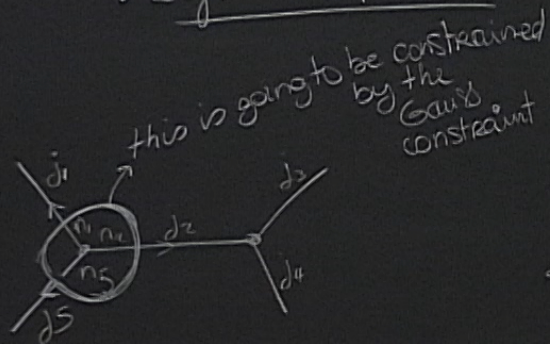 this is going to be constrained
by the
Gauss
constraint
j1
j3
n1 n2
j2
n5
j4
j5